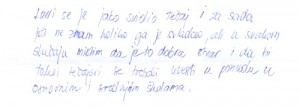 se je jako svidio tečaj i za sada
još ne znam koliko ga je svladao, ali u svakom
slučaju mislim da je to dobra stvar i da bi
takvi tečajevi se trebali uvesti u primjenu u
osnovnim i srednjim školama.